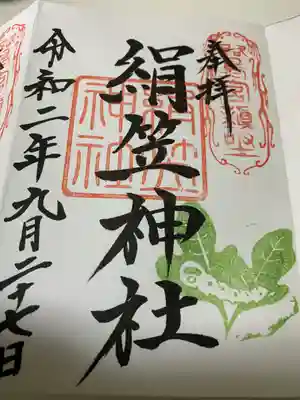 奉拝
絹笠神社
令和二年九月二十七日